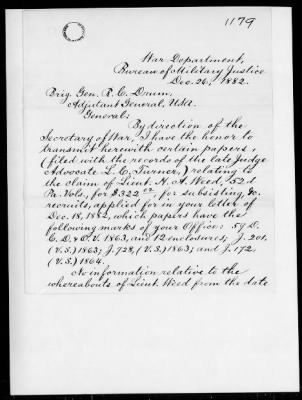 1179
War Department,
Bureau of Military Justice
Dec. 26, 1882.
Brig. Gen. R. C. Drum,
Adjutant General, U.S.A.
General:
By direction of the
Secretary of War, I have the honor to
transmit herewith certain papers,
(filed with the records of the late Judge
Advocate L. C. Turner,) relating to
the claim of Lieut. H. A. Weed, 52d
Pa. Vols, for $322 for subsisting, &c.
recruits, applied for in your letter of
Dec. 18, 1882, which papers have the
following marks of your Office: 59 D.
C. D. & O. V. 1863, and 12 enclosures; J. 201,
(V.S.) 1863; J. 728, (V.S.) 1863; and J. 172,
(V.S.) 1864.
No information relative to the
whereabouts of Lieut. Weed from the date